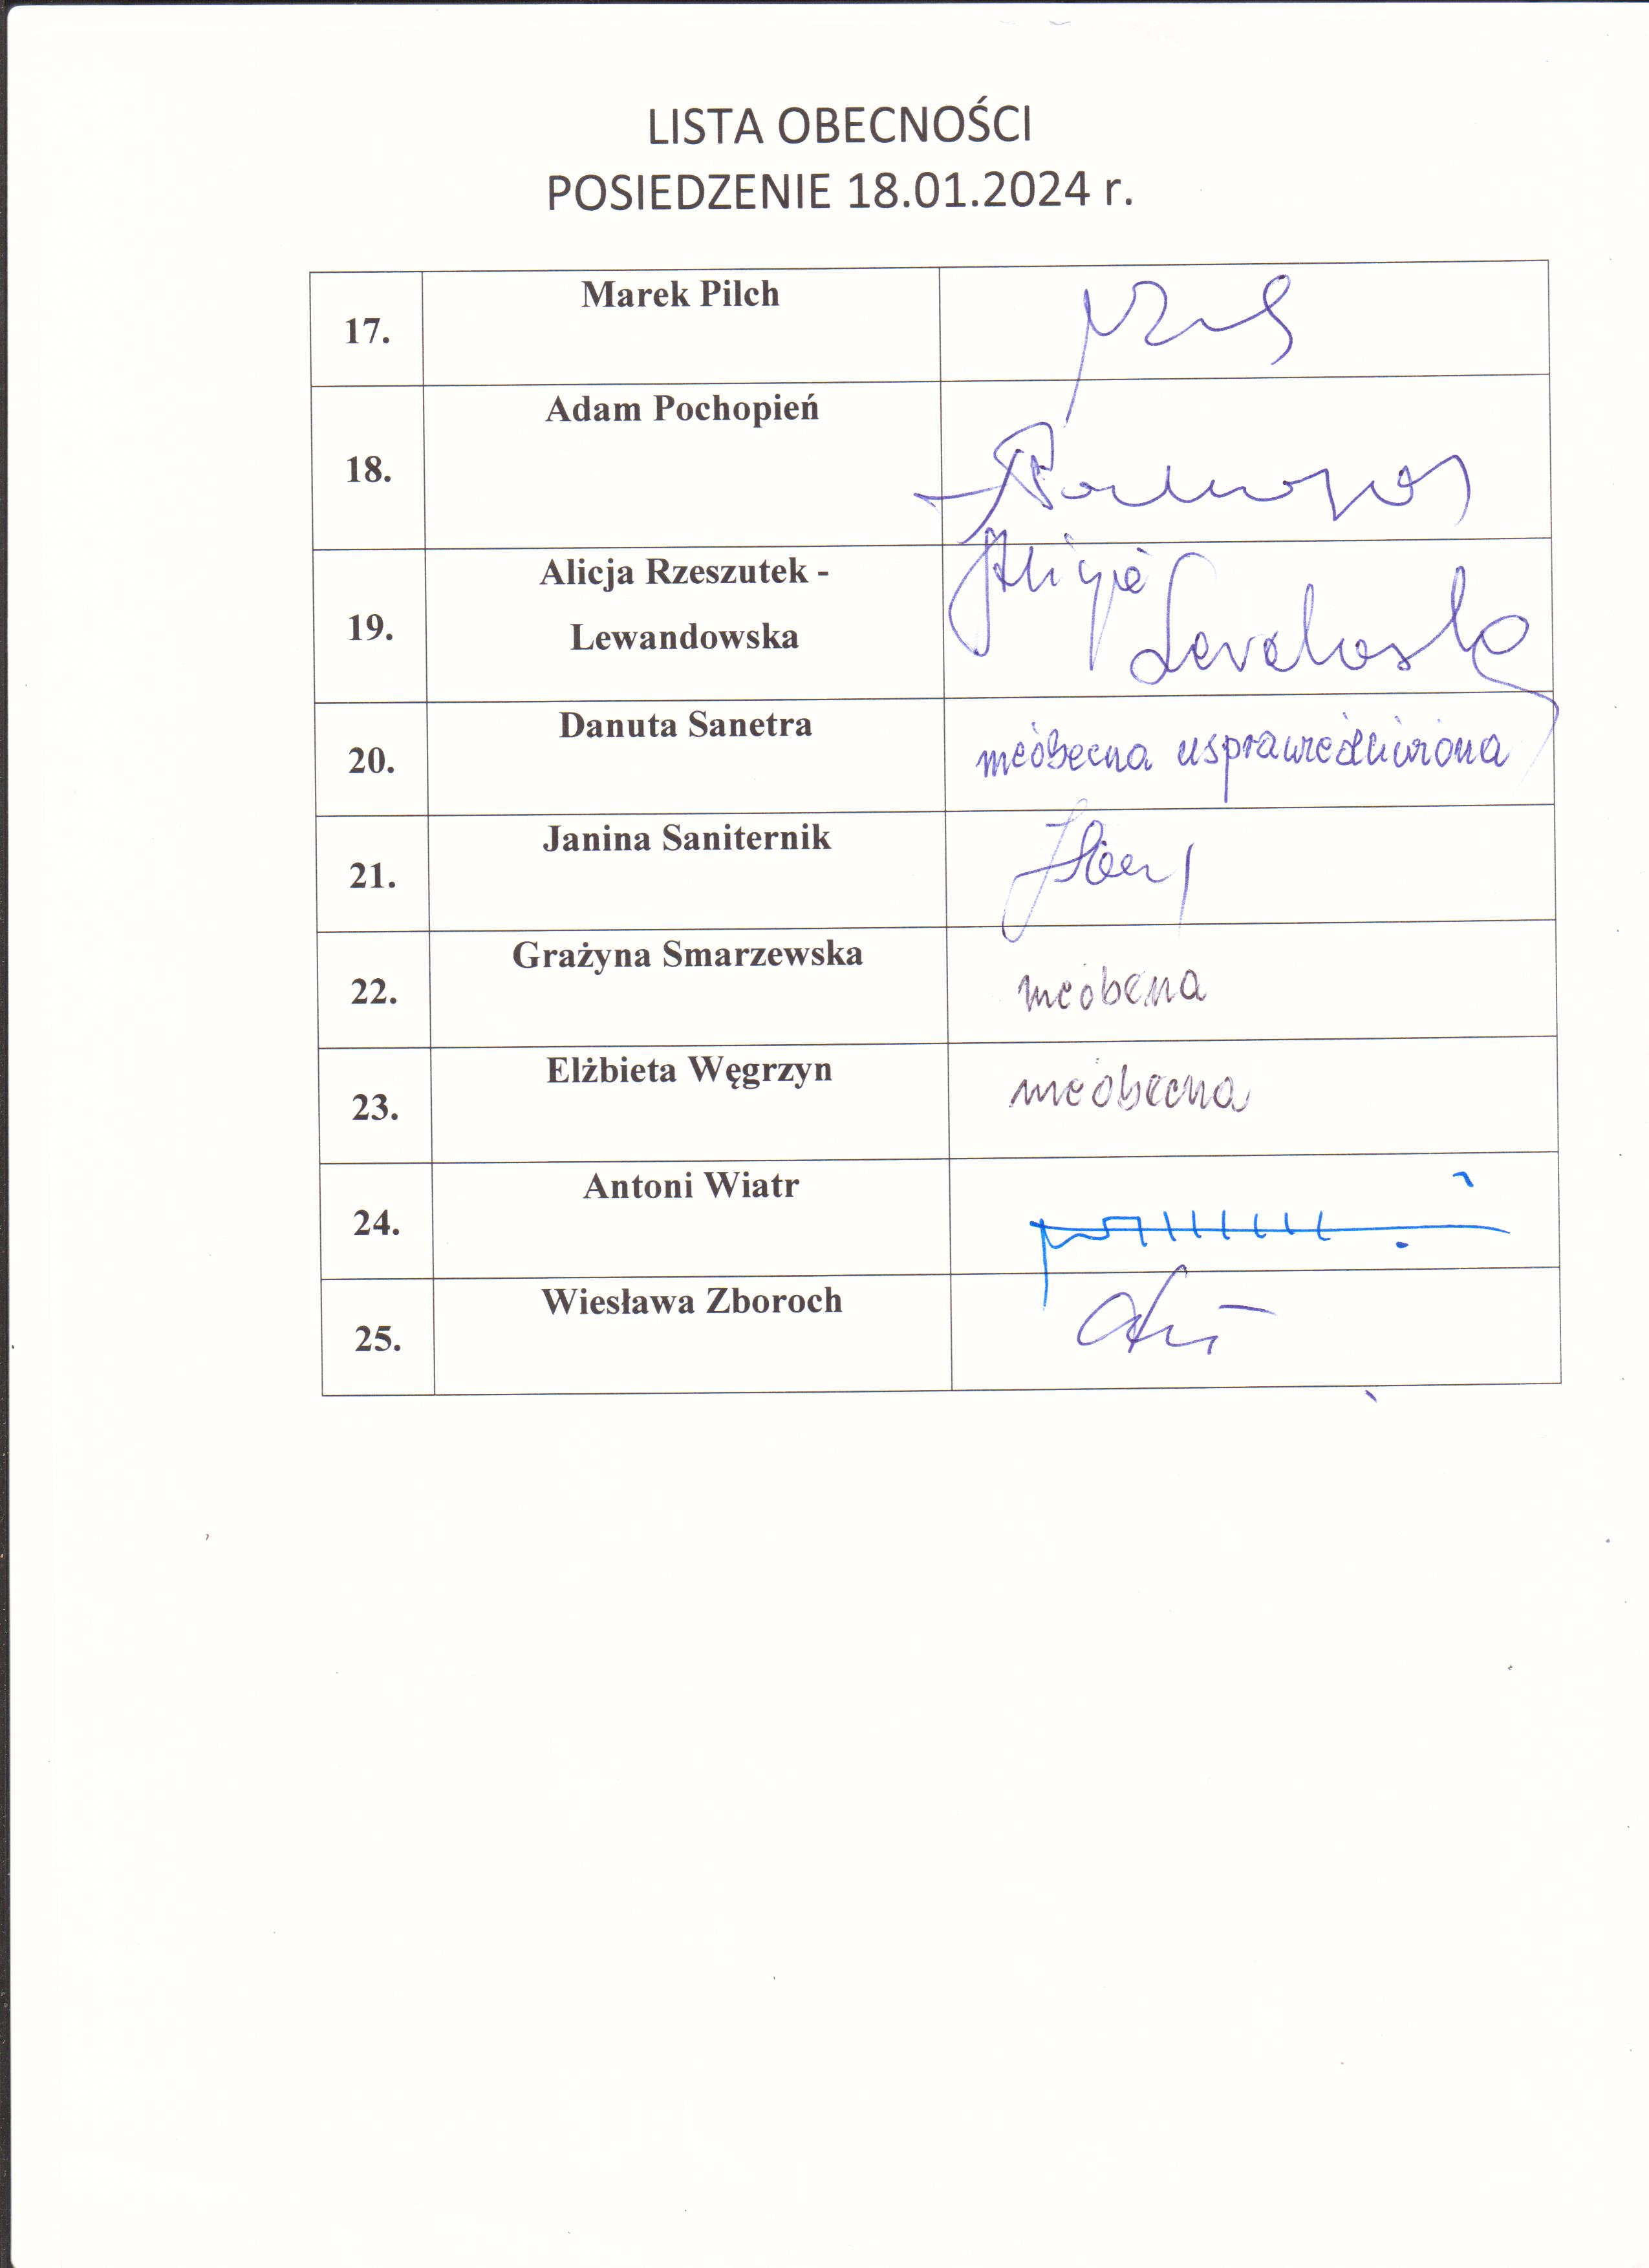 LISTA OBECNOŚCI
POSIEDZENIE 18.01.2024 r.
17. Marek Pilch
18. Adam Pochopień
19. Alicja Rzeszutek -
Lewandowska
Alicja
20. Danuta Sanetra nieobecna usprawiedliwiona
21. Janina Saniternik
22. Grażyna Smarzewska nieobecna
23. Elżbieta Węgrzyn nieobecna
24. Antoni Wiatr
25. Wiesława Zboroch